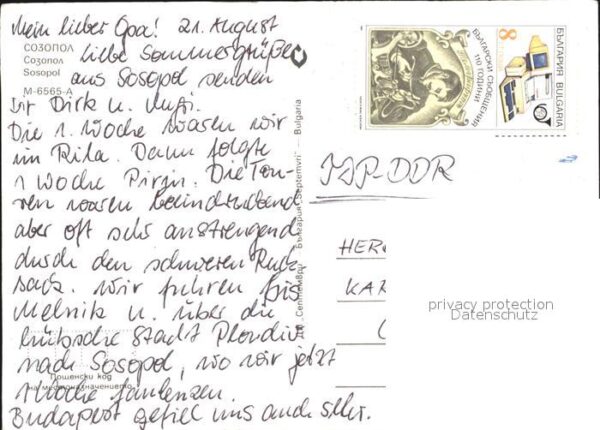 Mein lieber Opa! 21. August
Liebe Sommergrüße
aus Sosopol senden
Dir Dirk u.
Die 1. Woche waren wir
im Rila. Dann folgte
1 Woche Pirin. Die Tou-
ren waren beeindruckend
aber oft sehr anstrengend
durch den schweren Ruck
sack. Wir fuhren bis
Melnik u. über die
hübsche Stadt Plovdiv
nach Sosopol, wo wir jetzt
1 Woche faulenzen.
Budapest gefiel uns auch sehr.
СОЗОПОЛ
Созопол
Sosopol
М-6565-А
Пощенски код
на местоназначението
ДП „Септември“ — България „Septemvri“ — Bulgaria
БЪЛГАРСКИ СЪОБЩЕНИЯ
110 ГОДИНИ
БЪЛГАРИЯ BULGARIA
8
PAR AVION
ДДР-DDR
HER
KAR
privacy protection
Datenschutz